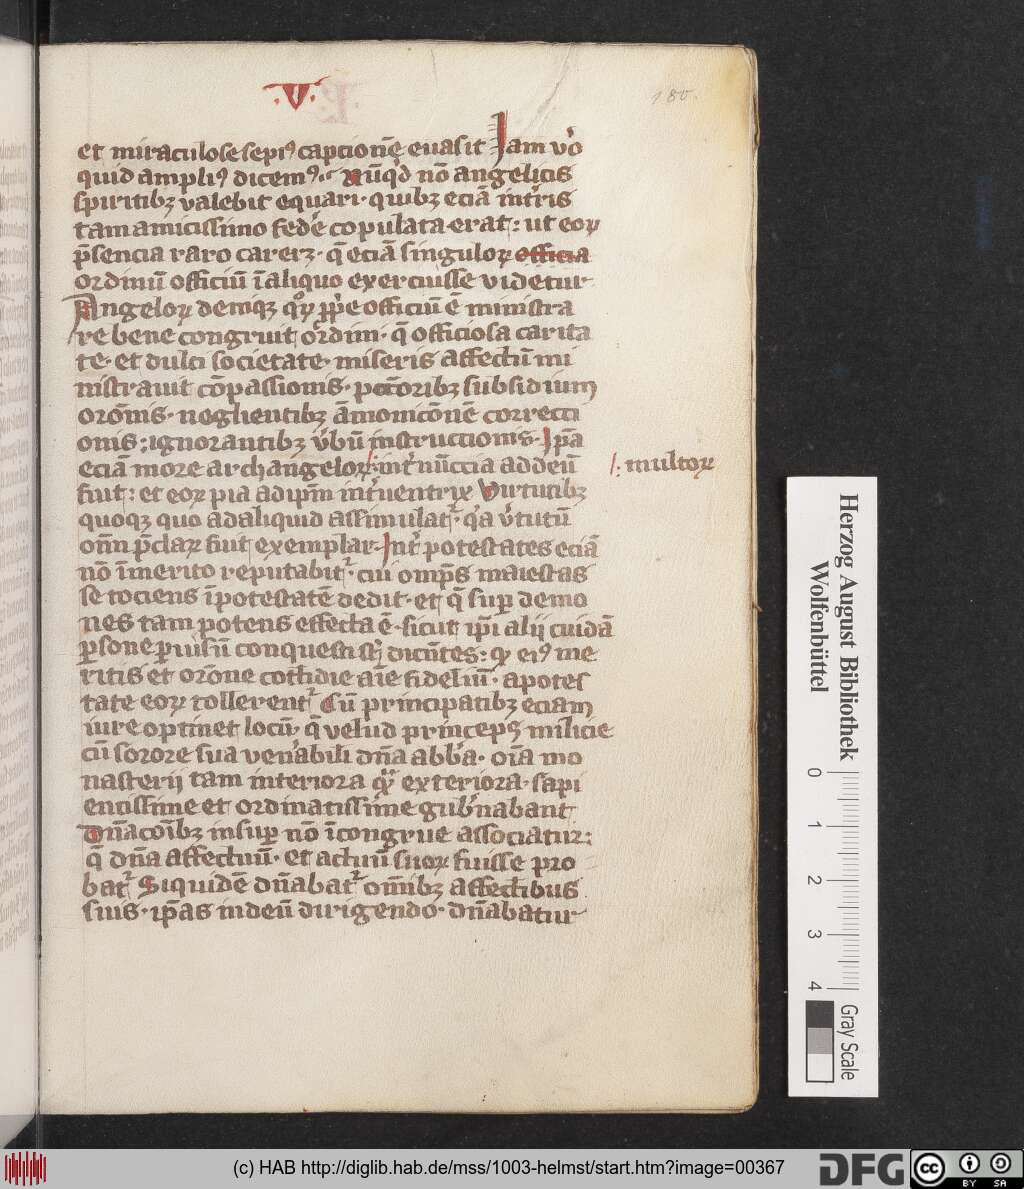 .V.
180.
et miraculose sepiꝰ captionē euasit Jam v̓o
quid ampliꝰ dicemꝰ. Nūq'd nō angelicis
spiritibꝫ valebit equari. quibꝫ eciā int̓ris
tam amicissimo fede̓ copulata erat: ut eoꝝ
p̄sencia raro careꝫ. q̄ eciā singuloꝝ officia
ordinū officiū ī aliquo exercuisse videtur
Angeloꝝ deniqꝫ officiū ē ministra
re bene congruit ordini. q̄ officiosa carita
te. et dulci societate. miseris affectū mi
nistrauit cōpassionis. pctōribꝫ subsidium
orōnis. neglientibꝫ āmonicōnē correcti
onis; ignorantibꝫ v̓bū instructionis. Jp̄a
eciā more archangeloꝝ /: int̓ nūccia ad deū
/: multoꝝ
fuit: et eoꝝ pia ad ip̄m int̓uentrix Virtutibꝫ
quoqꝫ quo ad aliquid assimulat᷑. q'a v̓tutū
om̄ p̄claꝝ fuit exemplar. Jnt̓ potestates eciā
nō īmerito reputabit᷑. cui omp̄s maiestas
se tociens ī potestatē dedit. et q̄ suꝑ demo
nes tam potens effecta ē. sicut ip̄i alij cuidā
ꝑsone ꝑuisū conquesti st̄ dicētes: eiꝰ me
ritis et orōne cottidie aīe fideliū. a potes
tate eoꝝ tollerent᷑ Cū principatibꝫ eciam
iure optinet locū. q̄ velud princeps milicie
cū sorore sua ven̓abili dn̄a abb̓a. oīa mo
nasterij tam interiora exteriora. sapi
entissime et ordinatissime gub̓nabant
Dn̄acōibꝫ insuꝑ nō īcongrue associatur:
q̄ dn̄a affectuū. et actuū suoꝝ fuisse pro
bat᷑ Siquidē dn̄abat᷑ om̄ibꝫ affectibus
suis. ip̄as in deū dirigendo. dn̄abatur
Herzog August Bibliothek
Wolfenbüttel
0 1 2 3 4
Gray Scale
(c) HAB http://diglib.hab.de/mss/1003-helmst/start.htm?image=00367
DFG
cc BY SA